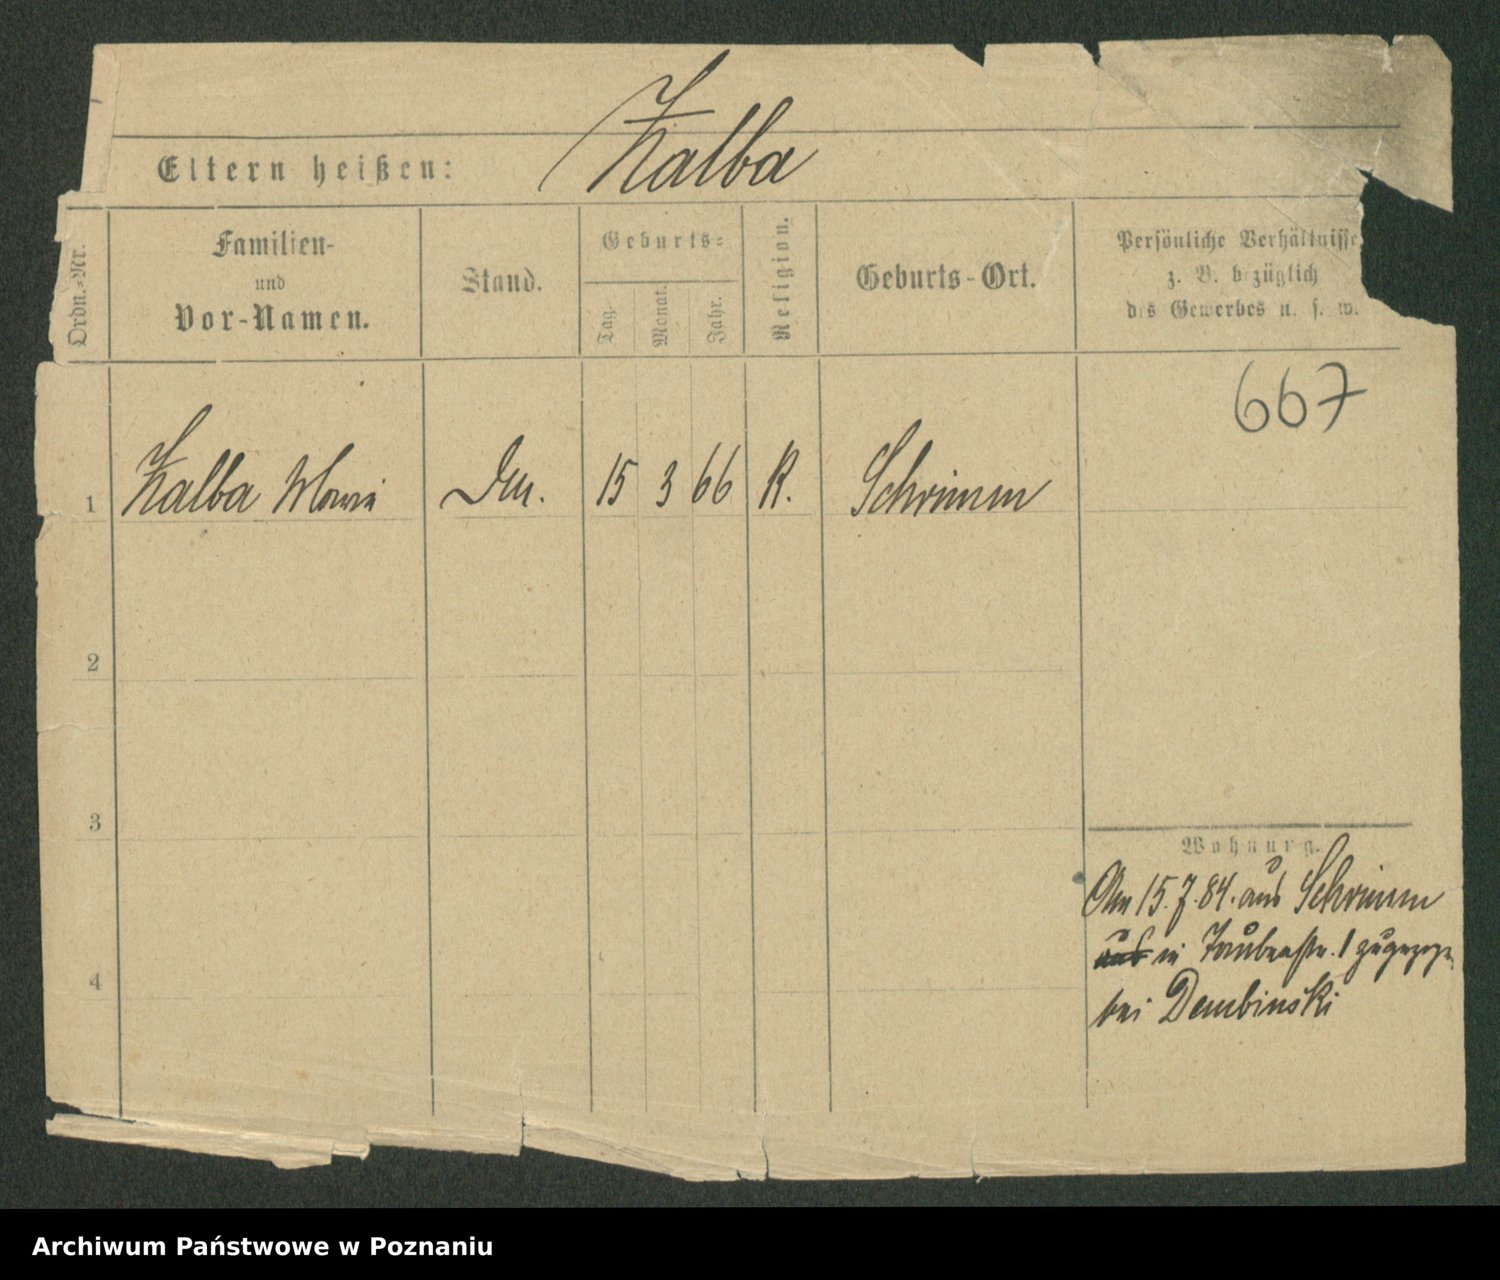 Kalba
Eltern heißen:
Ordn.-Nr.
Familien-
und
Vor-Namen.
Stand.
Geburts-
Tag.
Monat.
Jahr.
Religion.
Geburts-Ort.
Persönliche Verhältnisse
z. B. bezüglich
des Gewerbes u. s. w.
667
1 Kalba Marie 15 3 66 K. Schrimm
2
3
4
Wohnung.
Am 15.7.84. aus Schrimm
in Taubenstr. 1 zugezogen
bei Dembinski
Archiwum Państwowe w Poznaniu